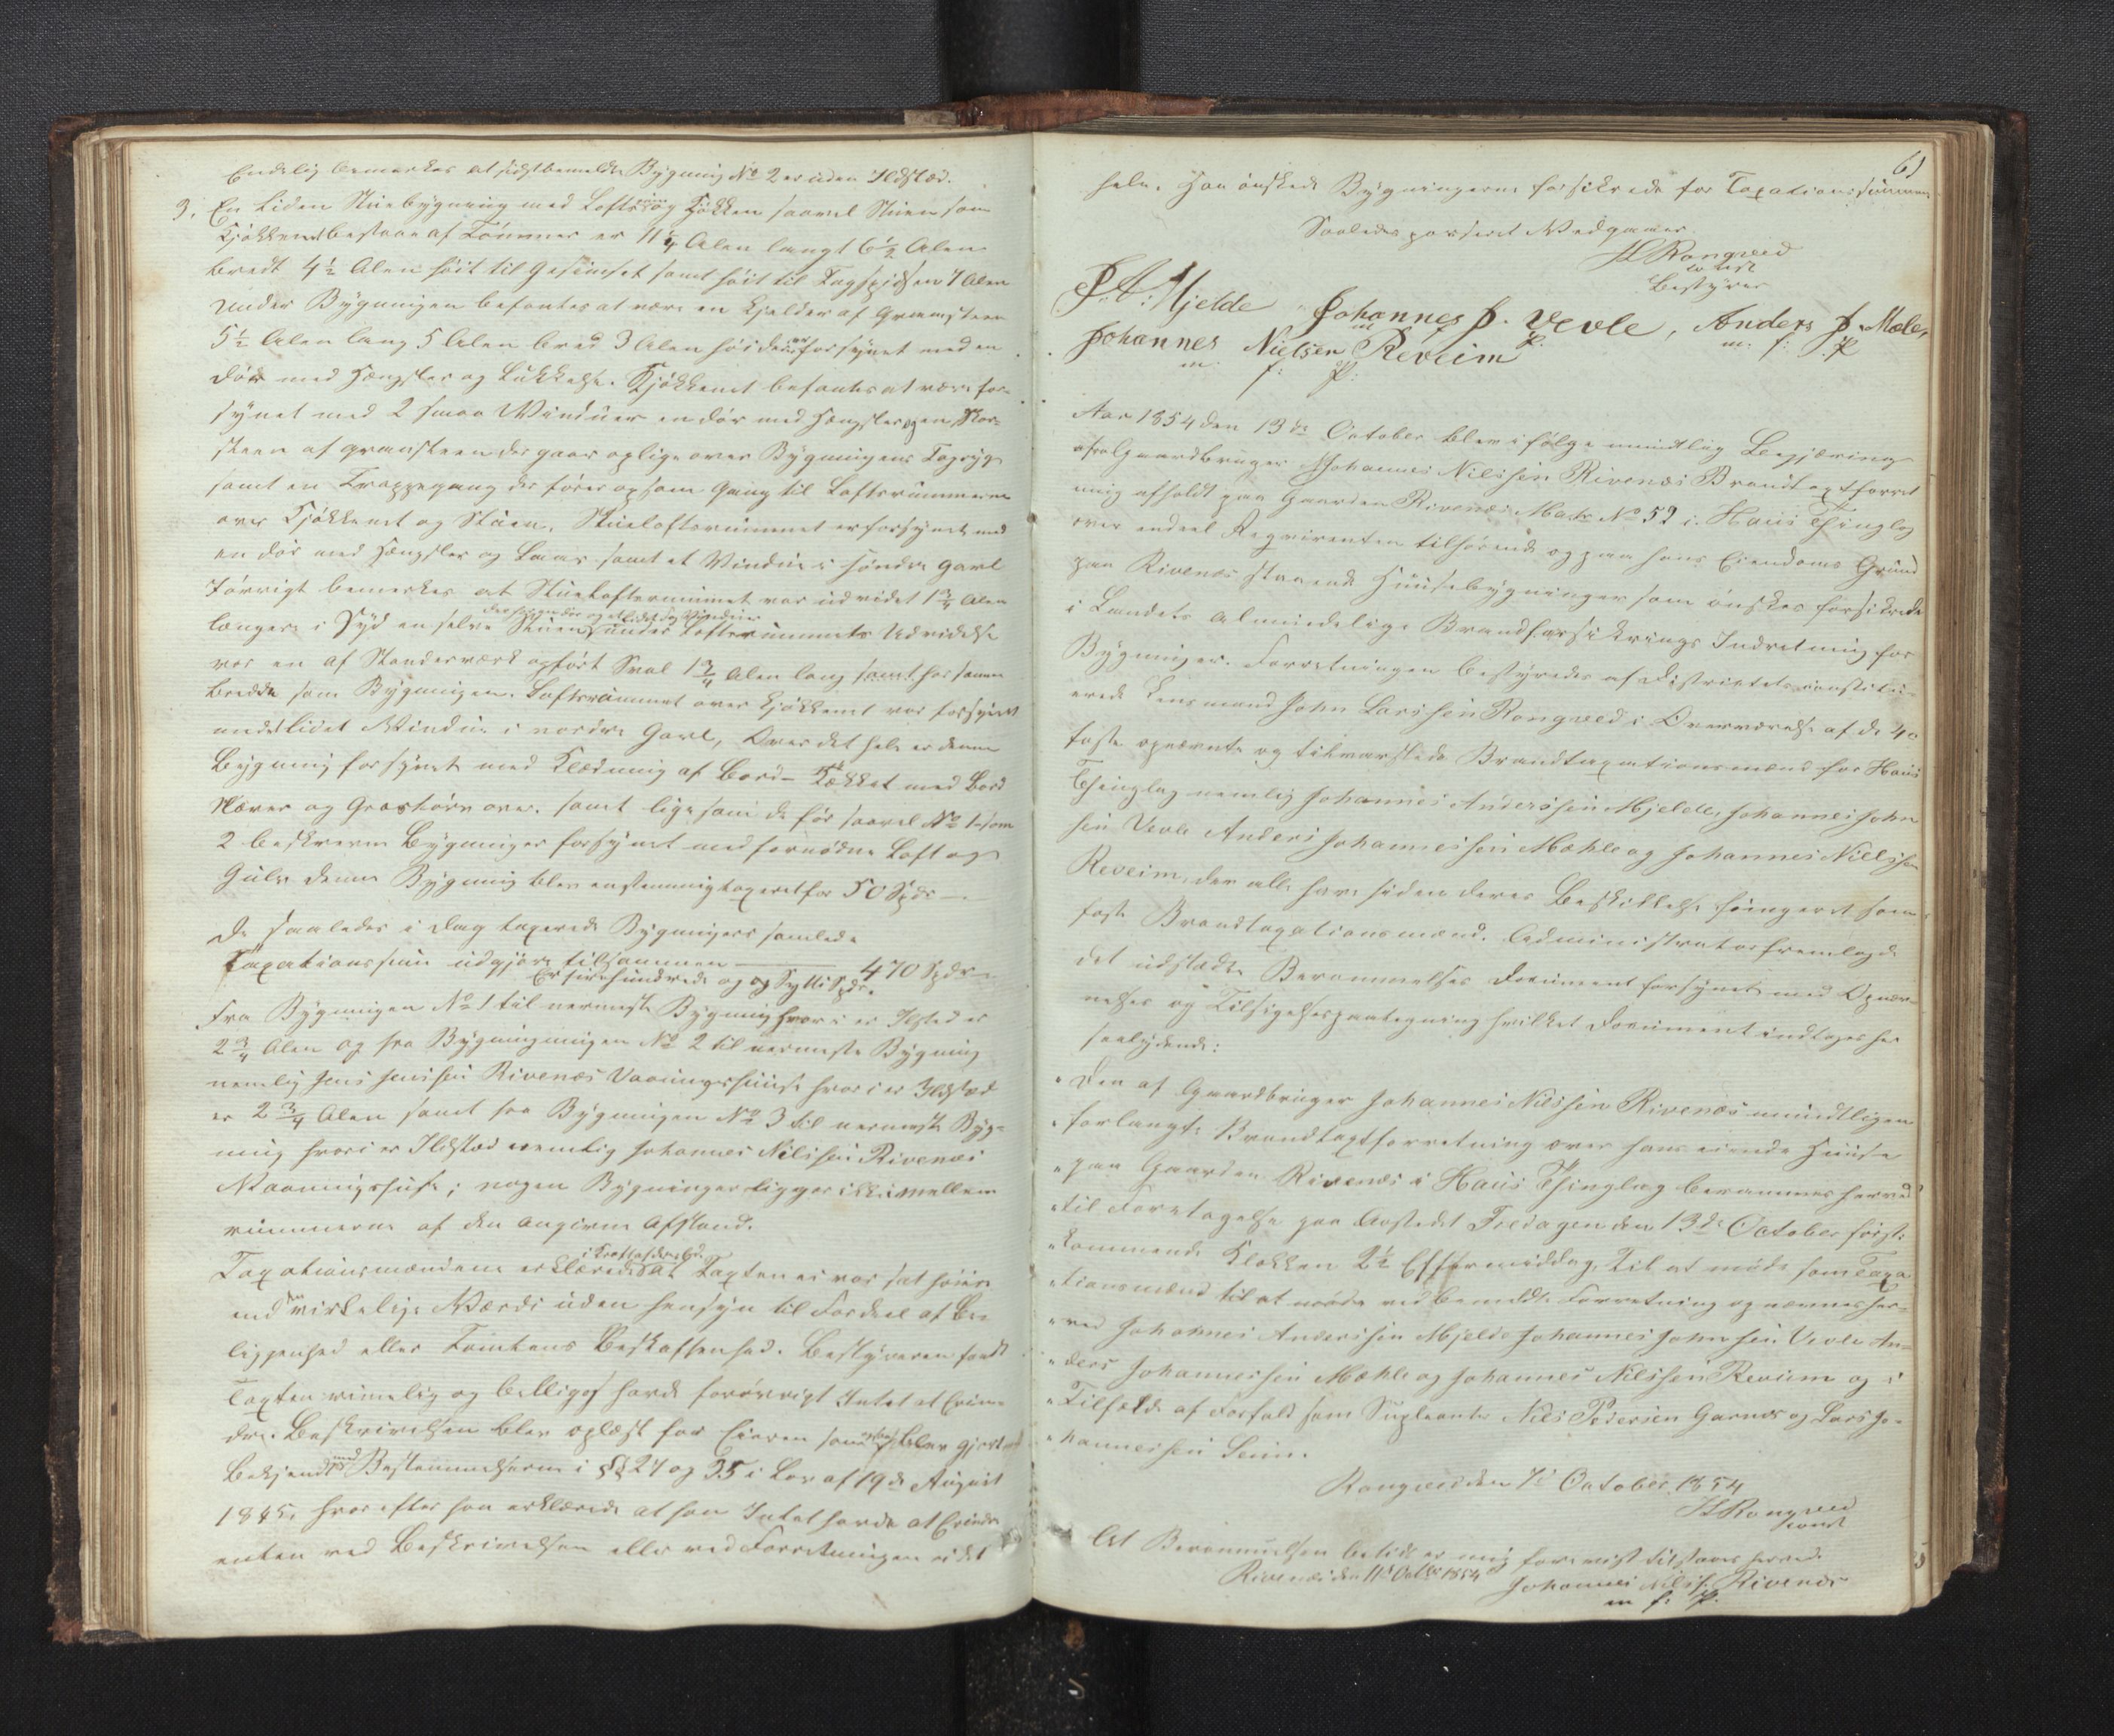 Endelig bemærkes at sidstbemeldte Bygning No 2 er uden Ildsted.
3. En liden Stuebygning med Loftsrum og Kjøkken saavel Stuen som
Kjøkkenet bestaar af Tømmer er 11 1/4 Alen langt 6 1/2 Alen
bredt 4 1/2 Alen høit til Gesimset samt høit til Tagspidsen 7 Alen
Under Bygningen befantes at være en Kjelder af Graasteen
5 1/2 Alen lang 5 Alen bred 3 Alen høi den var forsynet med en
Dør med Hængsler og Lukkelse. Kjøkkenet befantes at være for-
synet med 2 smaa Vinduer en dør med Hængsler og en Skor-
steen af graasteen der gaar oplige over Bygningens Tagryg
samt en Trappegang der fører op som Gang til Loftsrummerne
over Kjøkkenet og Stuen. Stueloftsrummet er forsynet med
en dør med Hængsler og Laas samt et Vindue i søndre Gavl
Iøvrigt bemerkes at Stueloftsrummet var udvidet 1 3/4 Alen
længere i Syd en selve Stuen under Loftsrummets Udvidelse
var en af Standerværk opført Sval 1 3/4 Alen lang samt har samme
bredde som Bygningen. Loftsrummet over Kjøkkenet var forsynet
med et lidet Vindue i nordre Gavl, Over det hele er denne
Bygning forsynet med Klædning af Bord - Tækket med Bord
Næver og Græstørv over. samt ligesom de før saavel No 1 som
2 beskrevne Bygninger forsynet med fornødne Loft og
Gulv denne Bygning blev enstemmig taxeret for 50 Spdr -
De saaledes i Dag taxerede Bygningers samlede
Taxationssum udgjøre tilsammen — 470 Spdr
Er firehundrede og og Sytti Spdr.
Fra Bygningen No 1 til nermeste Bygning hvori er Ilsted er
2 3/4 Alen og fra Bygningningen No 2 til nermeste Bygning
nemlig Jens Jensen Rivenæs Vaaningshuus hvori er Ildsted
er 2 3/4 Alen samt fra Bygningen No 3 til nermeste Byg-
ning hvori er Ildsted nemlig Johannes Nilssen Rivenæs
Vaaningshuse; nogen Bygninger ligger ikke imellem
rummerne af den angivne Afstand.
Taxationsmændene erklærede i Kraft af deres Ed at Taxten ei var sat høiere
end den virkelige Værdi uden hensyn til Fordeel af Be-
liggenhed eller Tomtens Beskaffenhed. Bestyreren fandt
Taxten rimelig og billig og havde forøvrigt Intet at Erin-
dre. Beskrivelsen blev oplæst for Eieren som blev gjort
Bekjendt med Bestemmelserne i §§ 24 og 35 i Lov af 19de August
1845, hvorefter han erklærede at han Intet havde at Erindre
enten ved Beskrivelsen eller ved Forretningen i det
61
hele. Han ønskede Bygningerne forsikrede for Taxationssummen
Saaledes passeret Vedgaaes
JL Rongved
const
Bestyrer
J. A. Mjelde Johannes J. Vevle, Anders J. Mæle,
m f P. m. f: P
Johannes Nielsen Reveim
m f: P:
Aar 1854 den 13de October blev i følge mundtlig Begjæring
af Gaardbruger Johannes Nilssen Rivenæs Brandtaxtforret
ning afholdt paa Gaarden Rivenæs Matr No 52 i Haus Thinglag
over endeel Reqvirenten tilhørende og paa hans Eiendoms Grund
paa Rivenæs staaende Huusebygninger som ønskes forsikrede
i Landets almindelige Brandforsikrings Indretning for
Bygninger. Forretningen bestyredes af Districtets constitu-
erede Lensmand John Larssen Rongved i Overværelse af de 4e
faste opnævnte og tilvarslede Brandtaxationsmænd for Haus
Thinglag nemlig Johannes Anderssen Mjelde, Johannes John
sen Vevle Anders Johannessen Mæhle og Johannes Nielssen
Reveim, der alle have siden deres Beskikkelse fungeret som
faste Brandtaxationsmænd. Administrator fremlagde
det udstædte Berammelses Document forsynet med Opnæv
nelses og Tilsigelsespaategning hvilket Document indtages her
saalydende:
"Den af Gaardbruger Johannes Nilssen Rivenæs mundtligen
"forlangte Brandtaxtforretning over hans eiende Huuse
"paa Gaarden Rivenæs i Haus Thinglag berammes herved
"til Foretagelse paa Aastedet Fredagen den 13de October først-
"kommende Klokken 2 1/2 Eftermiddag, Til at møde som Taxa
"tionsmænd til at møde ved bemeldte Forretning opnævnes her-
"ved Johannes Anderssen Mjelde Johannes Johnssen Vevle An-
"ders Johannessen Mæhle og Johannes Nilssen Reveim og i
"Tilfælde af Forfald som Supleanter Nils Pedersen Garnæs og Lars Jo-
"hannessen
Rongved den 7de October 1854
JL Rongved
const
At Berammelsen betids er mig forevist tilstaaes herved.
Rivenæs den 11te Octbr 1854 Johannes Nilss. Rivenæs
m f: P.